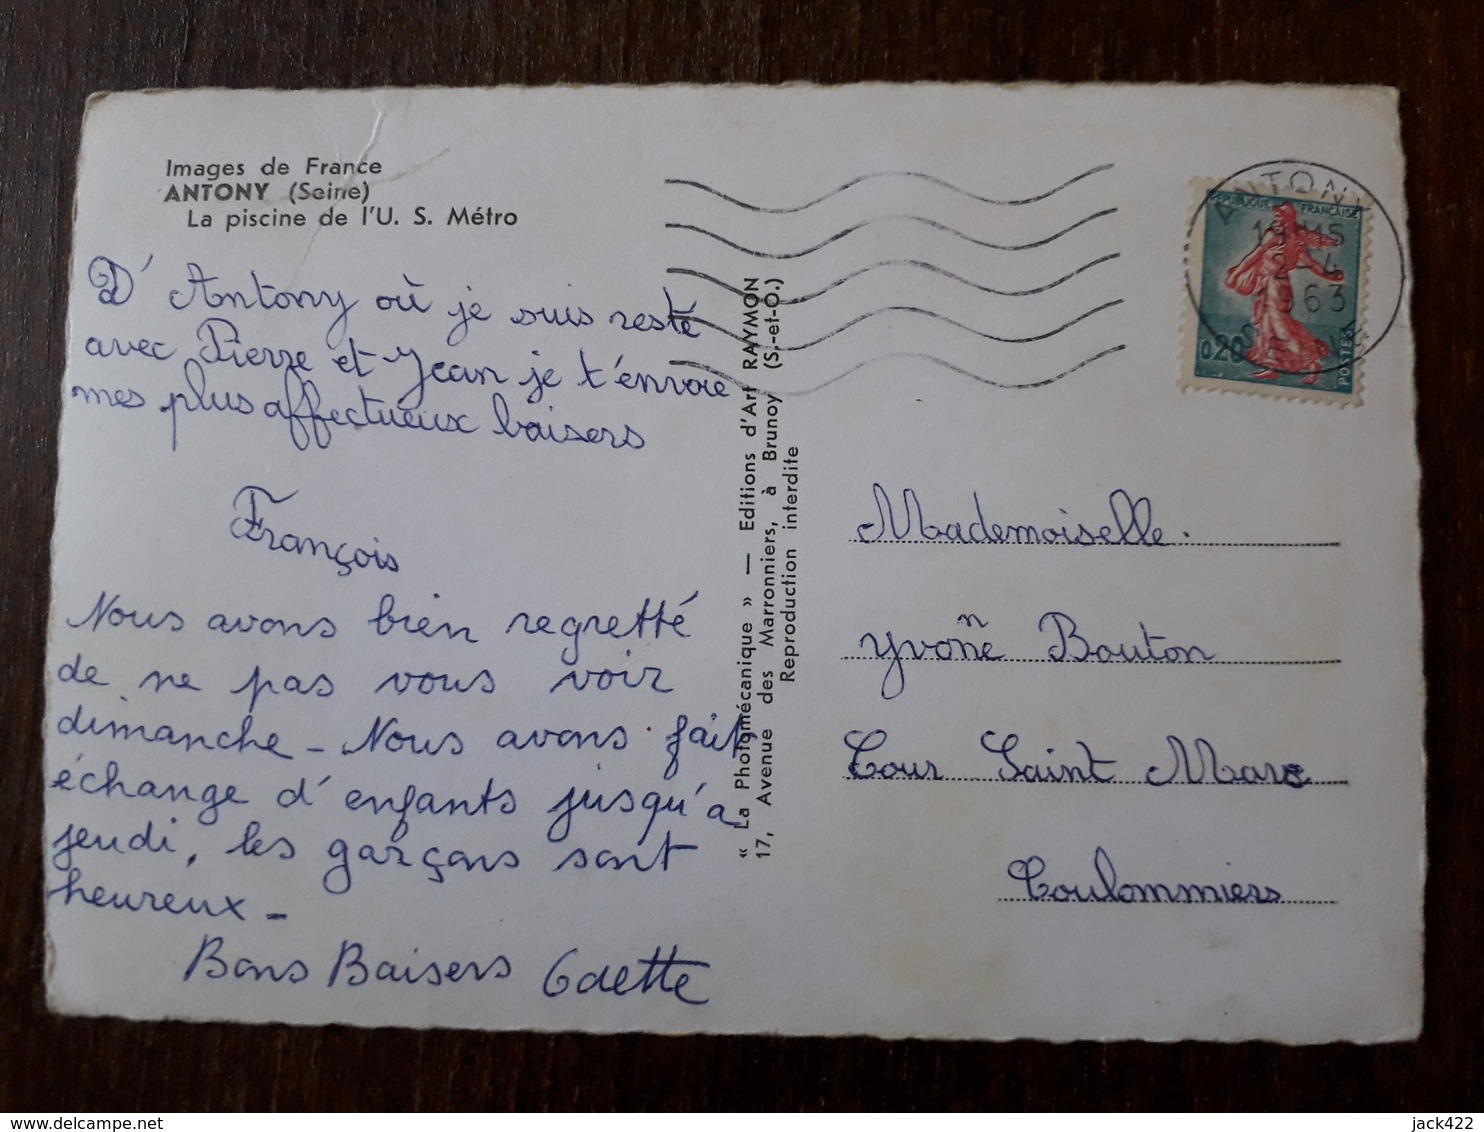 Images de France
ANTONY (Seine)
La piscine de l'U. S. Métro
D' Antony où je suis resté
avec Pierre et Jean je t'envoie
mes plus affectueux baisers
François
Nous avons bien regretté
de ne pas vous voir
dimanche - Nous avons fait
échange d'enfants jusqu'à
jeudi, les garçons sont
heureux -
Bons Baisers Odette
« La Photomécanique » — Editions d'Art RAYMON
17, Avenue des Marronniers, à Brunoy (S.-et-O.)
Reproduction interdite
ANTONY
19H15
2-4
1963
SEINE
REPUBLIQUE FRANÇAISE
0,20
POSTES
Mademoiselle.
Yvonne Bouton
Cour Saint Marc
Coulommiers
delcampe.net
jack422